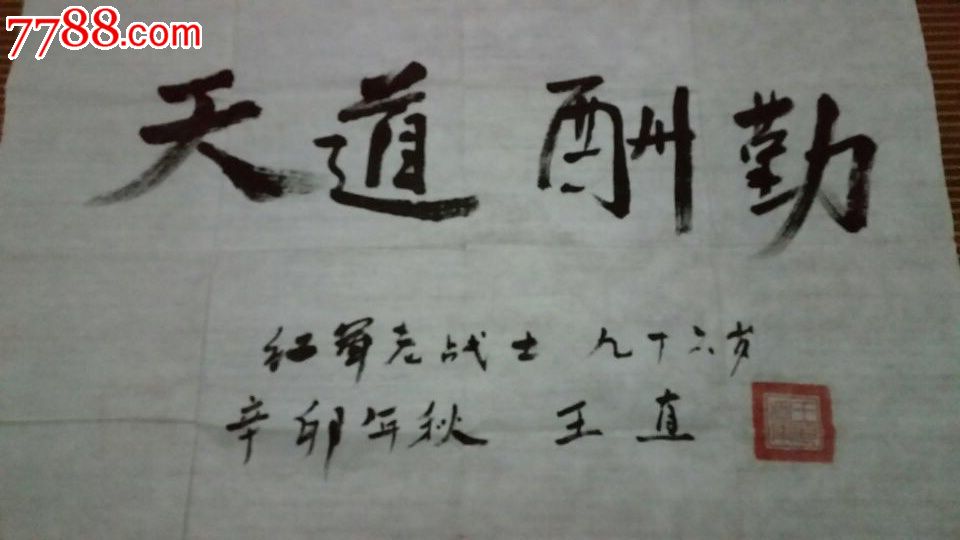 7788.com
天道酬勤
红军老战士 九十六岁
辛卯年秋 王直